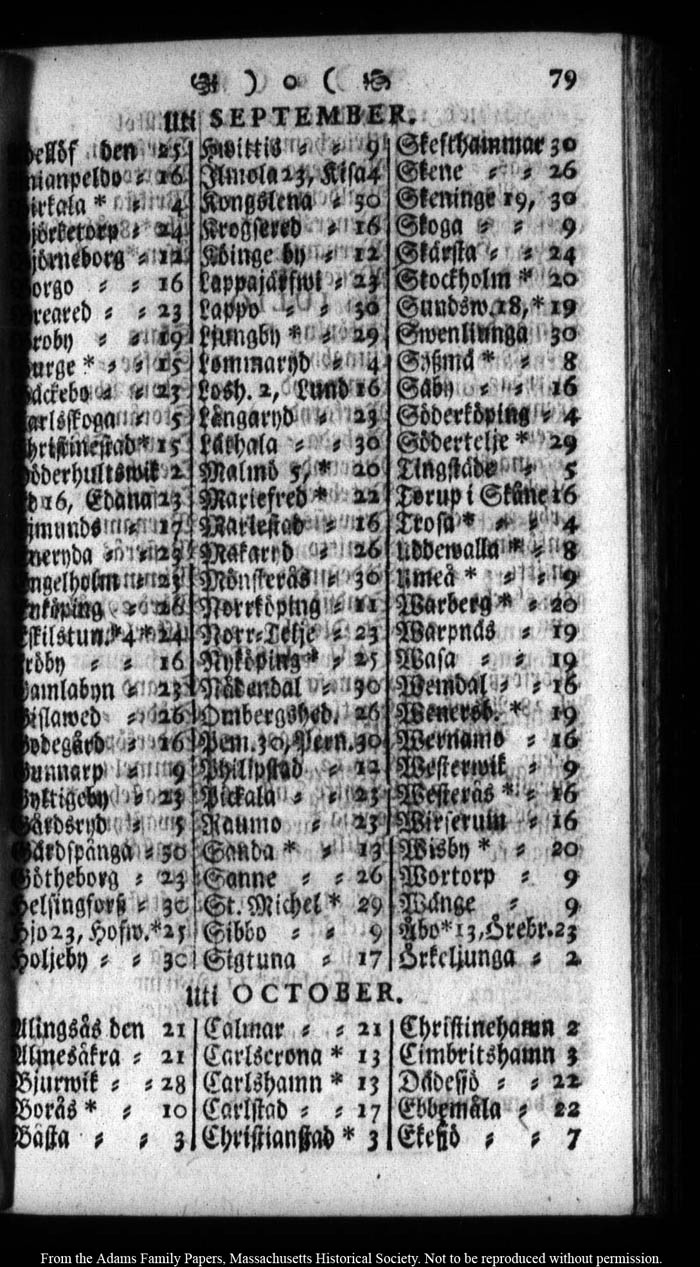 ) o ( 79
Uti SEPTEMBER.
den 25
16
* 4
24
12
16
23
19
* 15
23
5
* 15
2
16, Edana 23
17
23
23
26
*4* 24
16
23
26
16
9
23
5
30
Götheborg 23
Helsingforß 30
Hjo 23, Hofw.*25
Holjeby 30
Hwittis 9
Jmola 23, Kisa 4
Kongslena 30
Krogsered 16
Köinge by 12
Lappajärfwi 23
Lappo 30
Ljungby * 29
Lommaryd 4
Losh. 2, Lund 16
Långaryd 23
Läthala 30
Malmö 5, * 20
Mariefred * 22
Marlestad 16
Makaryd 26
Mönsterås 30
Norrköping 11
Norr-Telje 23
Nyköping * 25
Nådendal 30
Ombergshed. 26
Pem. 30, Pern. 30
Philipstad 12
Pickala 23
Raumo 23
Sanda * 13
Sanne 26
St. Michel * 29
Sibbo 9
Sigtuna 17
Skefthammar 30
Skene 26
Skeninge 19, 30
Skoga 9
Skärsta 24
Stockholm * 20
Sundsw. 18, * 19
Swenljunga 30
Sysmä * 8
Säby 16
Söderköping 4
Södertelje * 29
Tingstäde 5
Torup i Skåne 16
Trosa * 4
Uddewalla * 8
Umeå * 9
Warberg * 20
Warpnäs 19
Wasa 19
Wemdal 16
Wenersb. * 19
Wernamo 16
Westerwik 9
Westerås * 16
Wirserum 16
Wisby * 20
Wortorp 9
Wånge 9
Åbo * 13, Örebr. 23
Örkeljunga 2
Uti OCTOBER.
Alingsås den 21
Almesåkra 21
Bjurwik 28
Borås * 10
Båsta 3
Calmar 21
Carlscrona * 13
Carlshamn * 13
Carlstad 17
Christianstad * 3
Christinehamn 2
Cimbritshamn 3
Dädesjö 22
Ebbemåla 22
Ekesjö 7
From the Adams Family Papers, Massachusetts Historical Society. Not to be reproduced without permission.